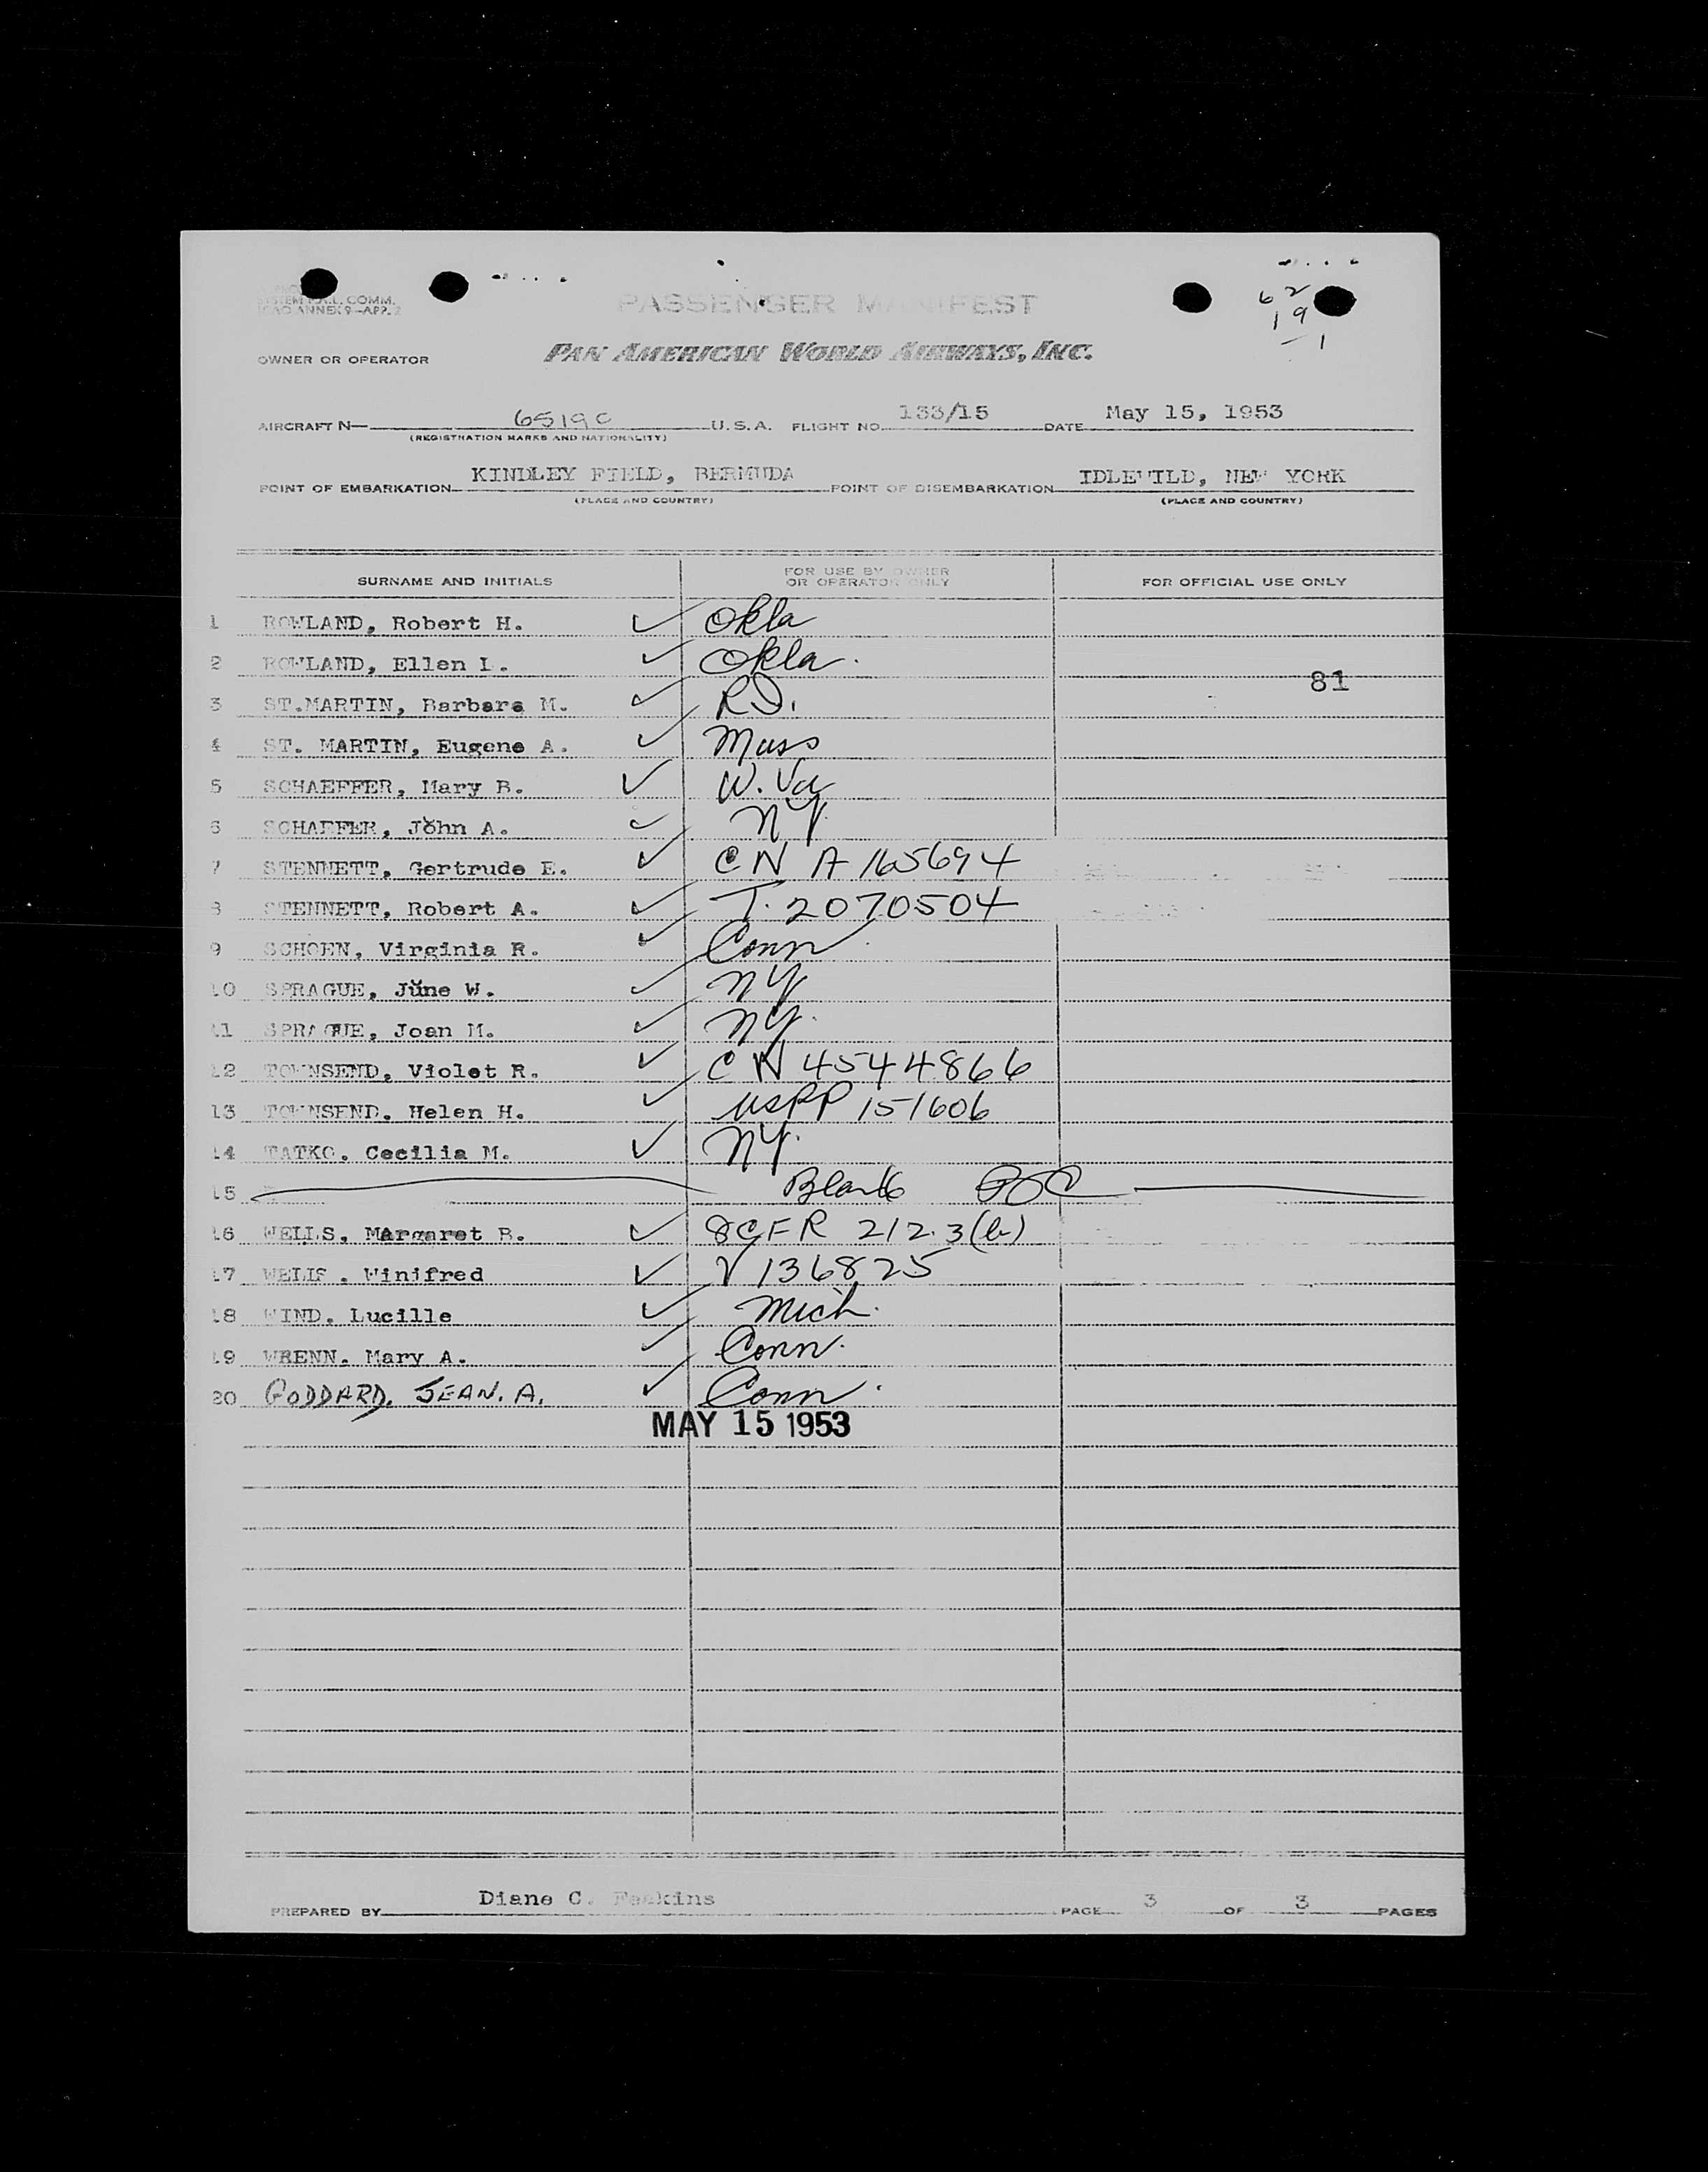 SYSTEM COMM.
ICAO ANNEX 9-APP. 2
PASSENGER MANIFEST
62
19
-1
OWNER OR OPERATOR PAN AMERICAN WORLD AIRWAYS, INC.
AIRCRAFT N- 6519C U.S.A. FLIGHT NO. 133/15 DATE May 15, 1953
(REGISTRATION MARKS AND NATIONALITY)
POINT OF EMBARKATION KINDLEY FIELD, BERMUDA POINT OF DISEMBARKATION IDLEWILD, NEW YORK
(PLACE AND COUNTRY) (PLACE AND COUNTRY)
SURNAME AND INITIALS FOR USE BY OWNER OR OPERATOR ONLY FOR OFFICIAL USE ONLY
1 ROWLAND, Robert H. ✓ Okla
2 ROWLAND, Ellen L. ✓ Okla.
81
3 ST.MARTIN, Barbara M. ✓ R.I.
4 ST. MARTIN, Eugene A. ✓ Mass
5 SCHAEFFER, Mary B. ✓ W. Va
6 SCHAEFFER, John A. ✓ NY.
7 STENNETT, Gertrude E. ✓ CN A 165694
8 STENNETT, Robert A. ✓ T. 2070504
9 SCHOEN, Virginia R. ✓ Conn
10 SPRAGUE, June W. ✓ NY
11 SPRAGUE, Joan M. ✓ NY.
12 TOWNSEND, Violet R. ✓ CN 4544866
13 TOWNSEND. Helen H. ✓ USPP 151606
14 TATKO. Cecilia M. ✓ NY.
15 Blank
16 WELLS, Margaret B. ✓ 8CFR 212.3(b)
17 WELLS. Winifred ✓ V 136825
18 WIND. Lucille ✓ Mich.
19 WRENN. Mary A. ✓ Conn.
20 GODDARD. JEAN. A. ✓ Conn.
MAY 15 1953
PREPARED BY Diane C. PAGE 3 OF 3 PAGES